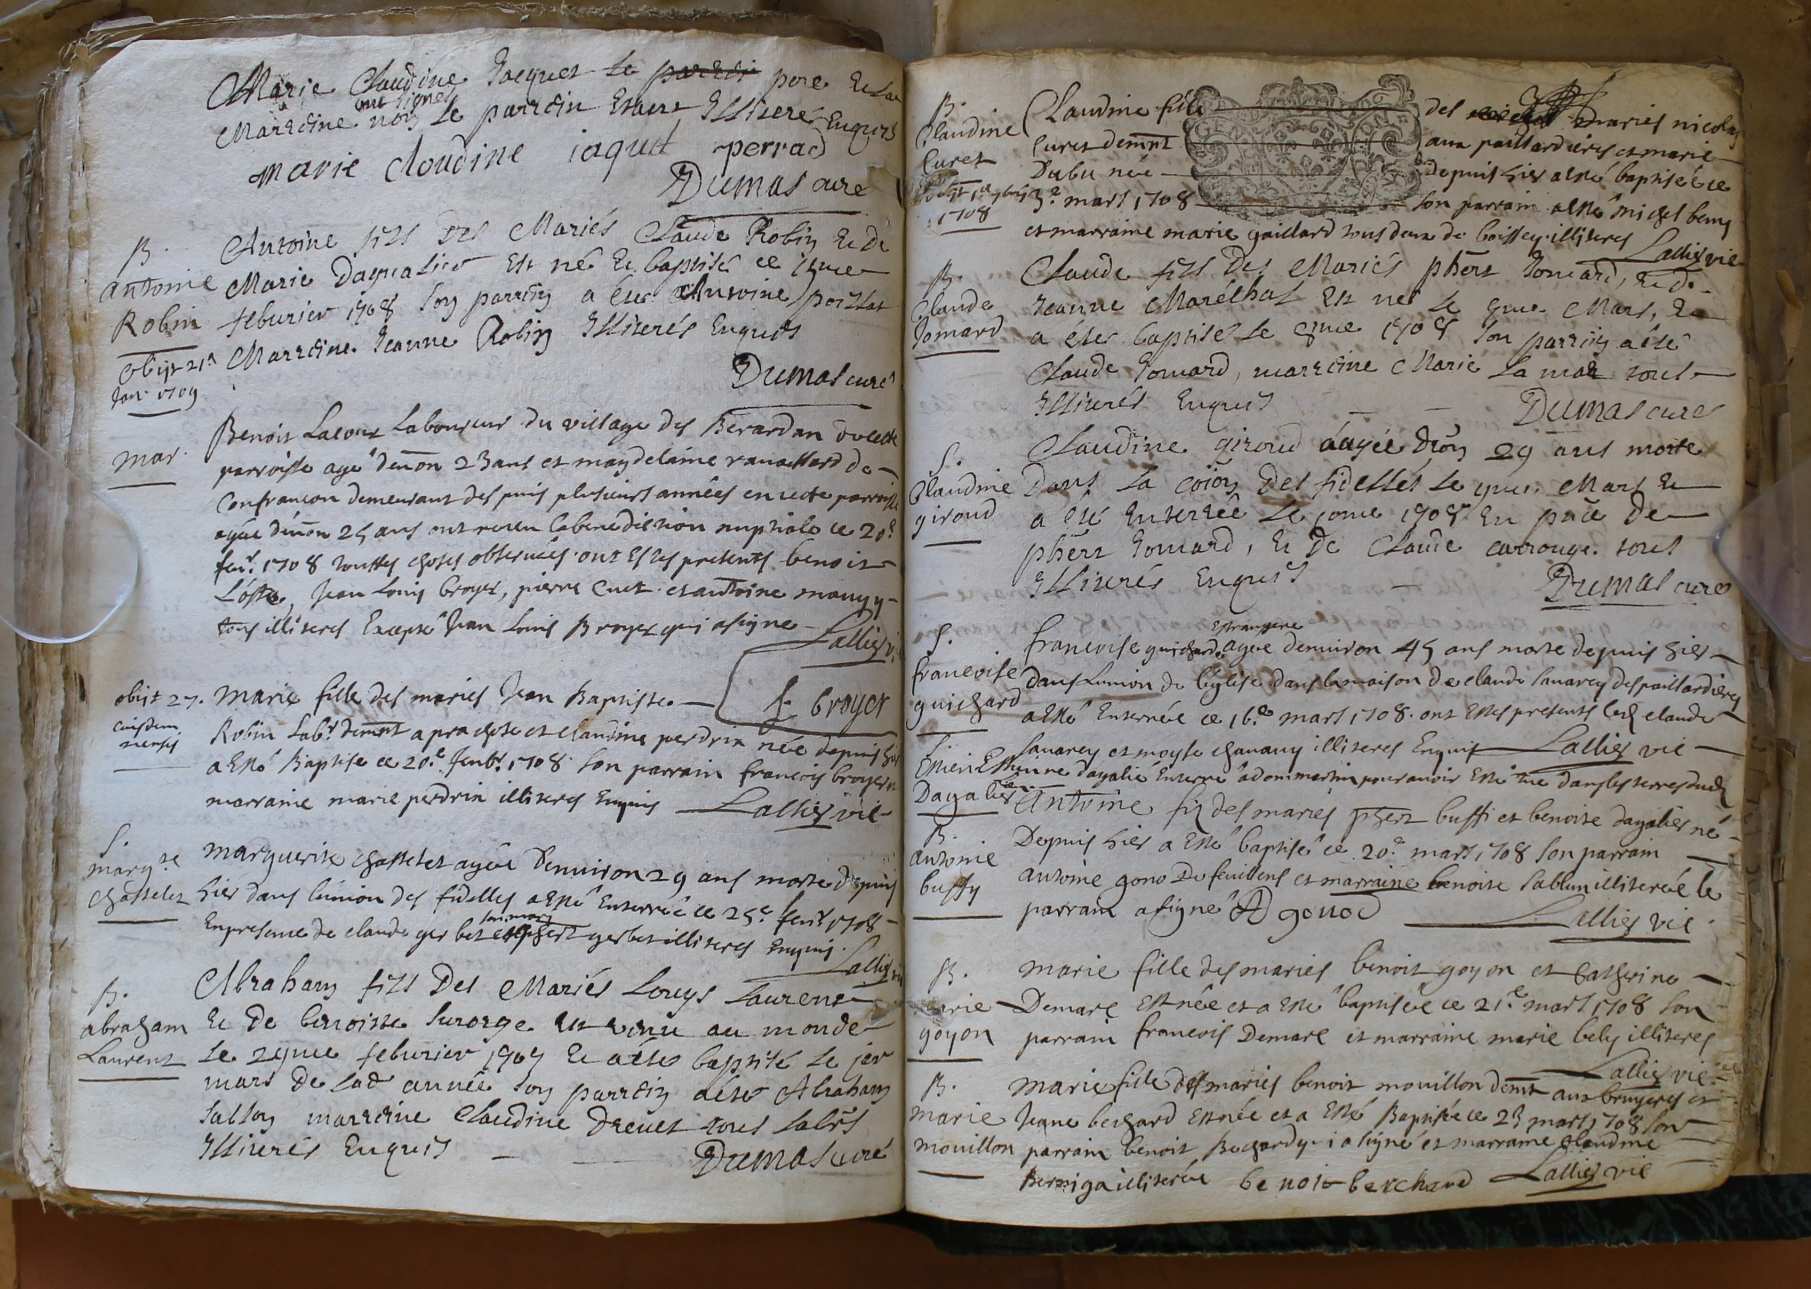 Marie Claudine Jacquet le pere et la
Marraine ont signés non le parrein Estant Illiteré Enquis
marie cloudine iaqutt perrad
Dumas curé
B.
antoine
Robin
obijt 21a
Janr 1709
Antoine fils Des Mariés Claude Robin et de
Marie Dagualier Est né et baptisé ce
feburier 1708 son parrein a esté Antoine
Marreine Jeanne Robin Illiterés Enquis
Dumas curé
mar.
Benoit Lacour Laboureur du village des Berardan de cette
parroisse agé denon 23 ans et magdelaine de
Confrancon demeurant despuis plusieurs années en cette parroisse
agée denon 25 ans ont receu la benediction nuptiale ce 20e
feur. 1708 touttes choses observées ont estes presents benoit
Jean Louis broyer, pierre Cuet et antoine
tous illiteres Excepté Jean Louis Broyer qui a signe Lallier vi
L broyer
obijt 27.
eiusdem
mensis
Marie fille des mariés Jean Baptiste
Robin Labr demnt a et claudine perdrix née depuis hier
a Esté Baptisé ce 20e feubr 1708 son parrain francois broyer
marraine marie perdrix illiteres Enquis Lallier vie
S.
margte
Chasselet
Marguerite chasselet agée Denuiron 29 ans morte depuis
hier dans lunion des fidelles a Esté Enterrée ce 25e feur 1708
En presence de claude gerbet son mary et gerbet illiteres Enquis
Lallier vi
B.
abraham
Laurent
Abraham fils Des Mariés Louys Laurent
et de benoiste Surorge Est venu au monde
Le 29me feburier 1708 et a esté baptisé le ier
mars de lad année son parrein a esté Abraham
Sallon marreine Claudine Dreuet tous Labrs
Illiterés Enquis
Dumas curé
B.
Claudine
Curet
1708
Claudine fille des mariés nicolas
Curet demnt aux paillardieres et marie
Dubu née depuis hier a esté baptisée ce
3e mars 1708 son parrain a esté michel
et marraine marie gaillard tous deux de boissey illiteres Lallier vie
B.
Claude
Jomard
Claude fils Des Mariés phert Jomard, et de
Jeanne Maréchal Est né le Mars, et
a esté baptisé le 1708 son parrein a esté
Claude Jomard, marreine Marie La mar tous
Illiterés Enquis
Dumas curé
S.
Claudine
giroud
Claudine giroud aagée Dēon 29 ans morte
Dans la coiōn Des fidelles le Mars et
a esté Enterrée Le 1708 En pnce De
phert Jomard, et De Claude carrouge tous
Illiterés Enquis
Dumas curé
S.
francoise
guichard
francoise guichard Estrangere agée denuiron 45 ans morte depuis hier
dans lunion de leglise dans la maison de claude sauarey des paillardieres
a Esté Enterrée ce 16e mars 1708 ont Estes presents led claude
sauarey et moyse chanauy illiteres Enquis Lallier vie
Dagalier
Estienne dagalié Enterré a dommartin pour auoir Esté tué dans les terres dud
B.
antoine
buffy
Antoine fis des mariés phert buffi et benoite dagalier né
Depuis hier a Esté baptisé ce 20e mars 1708 son parrain
antoine gono De feuillens et marraine benoite sablun illiterée le
parrain a signé A gonod
Lallier vie
B.
marie
goyon
Marie fille des mariés benoit goyon et Catherine
Demare Est née et a Esté baptisée ce 21e mars 1708 son
parrain francois Demare et marraine marie bely illiteres
Lallier vie
B.
marie
mouillon
Marie fille des mariés benoit mouillon demnt aux bruyeres et
Jeane bechard Est née et a Esté Baptisée ce 23 mars 1708 son
parrain benoit Bechard qui a signé et marraine claudine
illiterée benoit berchard Lallier vie